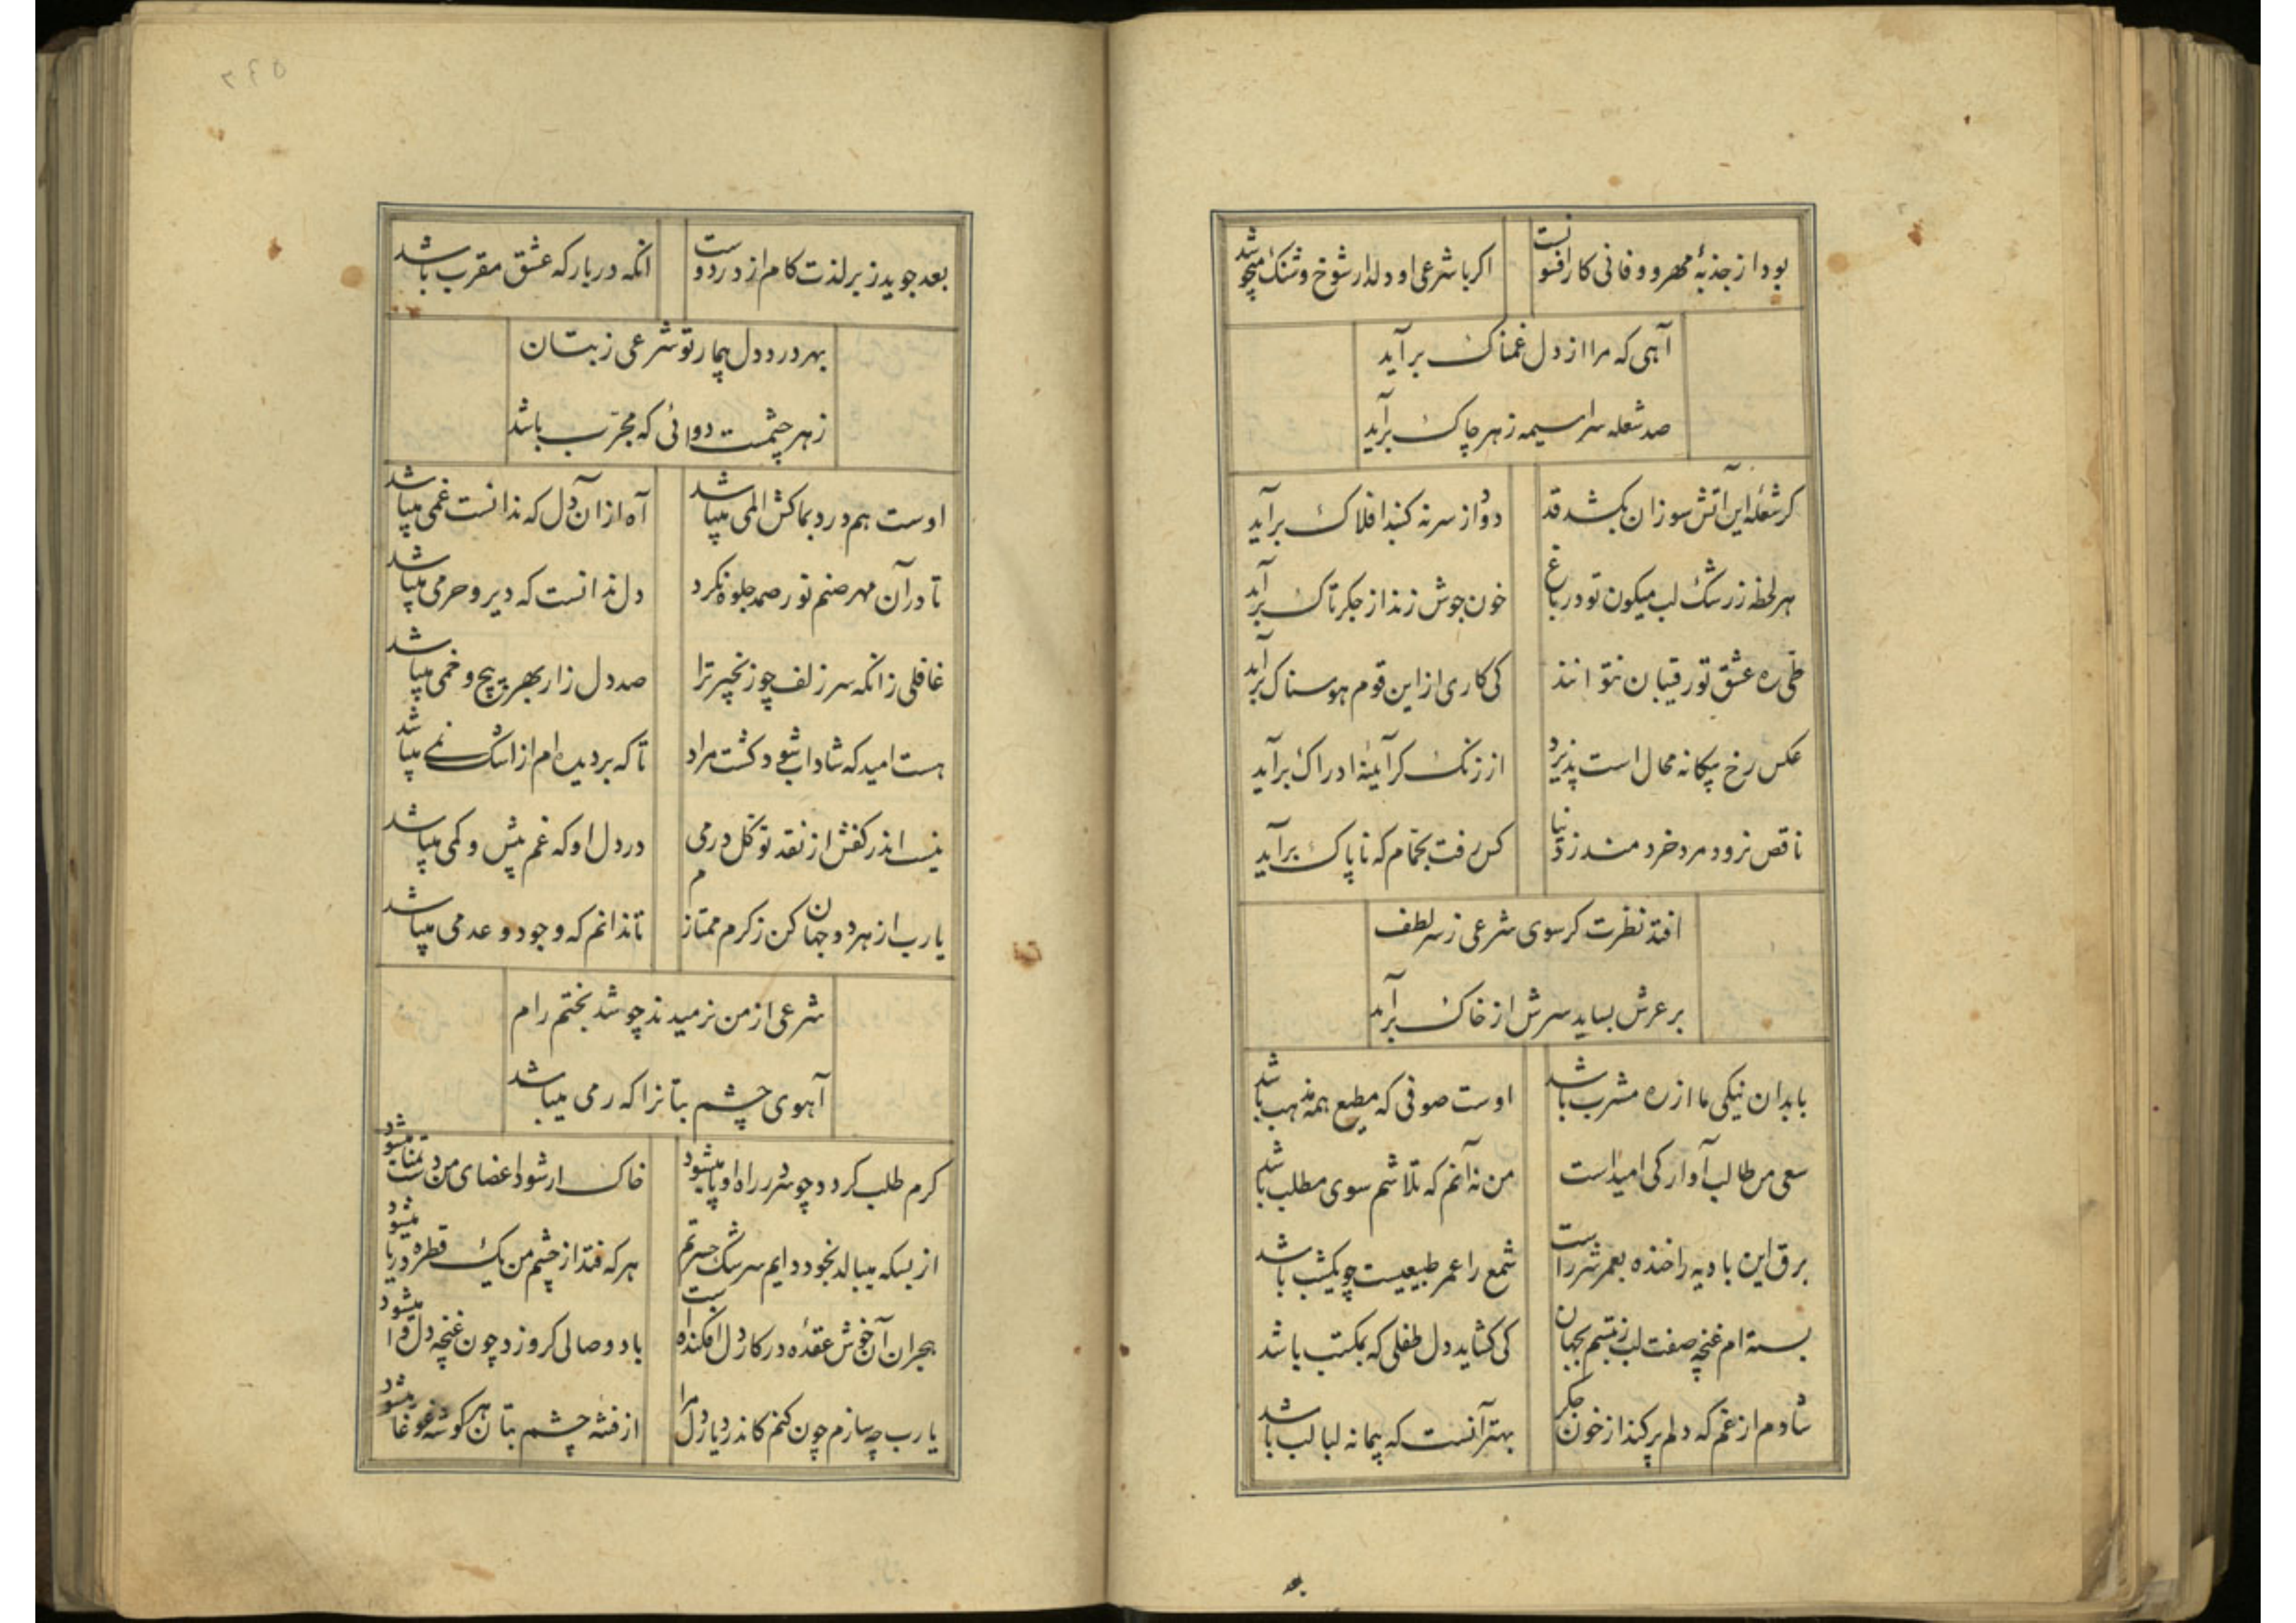 بود از جذبهٔ مهر و وفا نی کار افسونست
اکر با شرعی او دلدار شوخ و شنک میجوشد
آهی که مرا از دل غمناک برآید
صد شعله سراسیمه ز هر چاک برآید
کر شعلهٔ این آتش سوزان بکشد قد
دود از سر نه کنبد افلاک برآید
هر لحظه ز رشک لب میکون تو در باغ
خون جوش زند از جکر تاک برآید
طی ره عشق تو رقیبان نتوانند
کی کاری ازین قوم هوسناک برآید
عکس رخ بیکانه محال است پذیرد
از زنک کر آیینهٔ ادراک برآید
ناقص نرود مرد خردمند ز دنیا
کس رفت بحمام که ناپاک برآید
افتد نظرت کر سوی شرعی ز سر لطف
بر عرش بساید سرش از خاک برآید
با بدان نیکی ما از ره مشرب باشد
اوست صوفی که مطیع همه مذهب باشد
سعی من طالب آوارکی امید است
من نه آنم که تلاشم سوی مطلب باشد
برق این بادیه را خنده بعمر شرر است
شمع را عمر طبیعیست چو یکشب باشد
بسته ام غنچه صفت لب ز تبسم بجهان
کی کشاید دل طفلی که بمکتب باشد
شادم از غم که دلم پر کند از خون جکر
بهتر آنست که پیمانه لبالب باشد
بعد
۳۴۵
بعد جوید ز بر لذت کام از در دوست
انکه در بارکه عشق مقرب باشد
بهر درد دل بیمار تو شرعی ز بتان
زهر چشمست دوائی که مجرب باشد
اوست همدرد بما کش المی میباشد
آه از آن دل که ندانست غمی میباشد
تا در آن مهر صنم نور صمد جلوه نکرد
دل ندانست که دیر و حرمی میباشد
غافلی زانکه سر زلف چو زنجیر ترا
صد دل زار بهر پیچ و خمی میباشد
هست امید که شاداب شود کشت مراد
تا که بر دیده ام از اشک نمی میباشد
نیست اندر کفش از نقد توکل درمی
در دل او که غم بیش و کمی میباشد
یا رب از هر دو جهان کن ز کرم ممتازم
تا ندانم که وجود و عدمی میباشد
شرعی از من نرمیدند چو شد بختم رام
آهوی چشم بتانرا که رمی میباشد
کرم طلب کردد چو سر در راه او پا میشود
خاک ار شود اعضای من دست تمنا میشود
از بسکه میبالد بخود دایم سرشک حسرتم
هر که فتد از چشم من یک قطره دریا میشود
هجران آن خوش عقده در کار دل افکنده است
باد وصالی کر وزد چون غنچه دل وا میشود
یا رب چه سازم چون کنم کاندر دیار دل مرا
از فتنه چشم بتان هر کوشه غوغا میشود